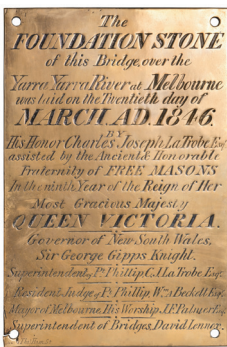 The
FOUNDATION STONE
of this Bridge, over the
Yarra Yarra River at Melbourne
was laid on the Twentieth day of
MARCH, A.D. 1846.
BY
His Honor Charles Joseph La Trobe Esqr
assisted by the Ancient & Honorable
Fraternity of FREE MASONS
In the ninth Year of the Reign of Her
Most Gracious Majesty
QUEEN VICTORIA.
Governor of New South Wales,
Sir George Gipps Knight.
Superintendent, Pt Phillip C. J. La Trobe Esqr.
Resident Judge of Pt Phillip, Wm a'Beckett Esqr.
Mayor of Melbourne His Worship J. F. Palmer Esqr.
Superintendent of Bridges, David Lennox.